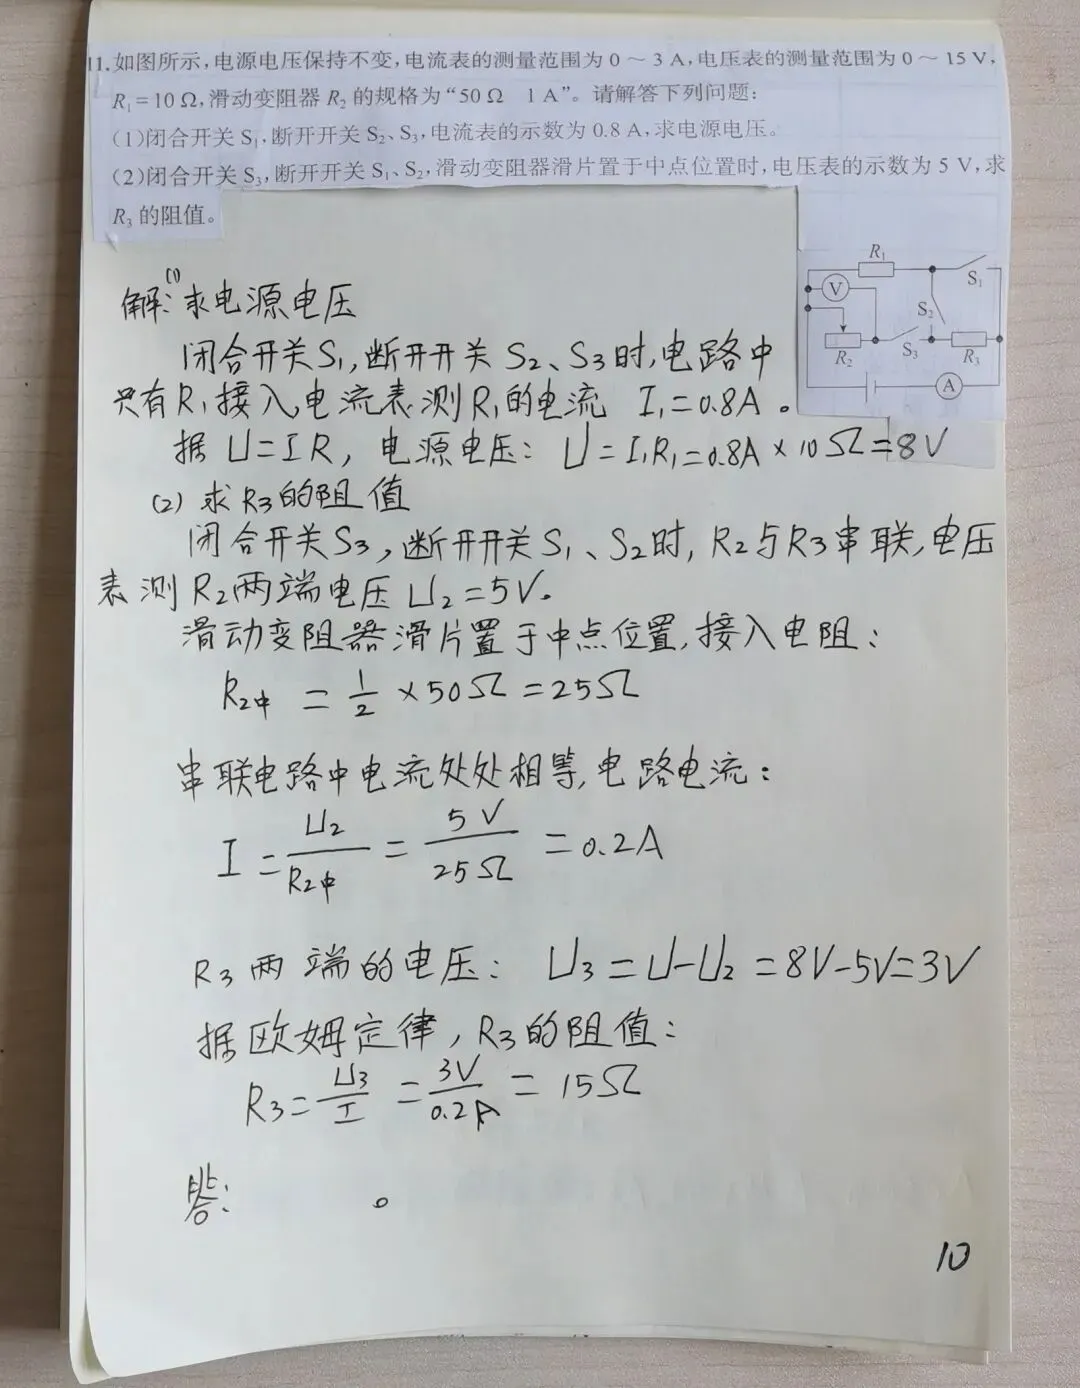 11.如图所示,电源电压保持不变,电流表的测量范围为0～3 A,电压表的测量范围为0～15 V,
R₁=10 Ω,滑动变阻器 R₂ 的规格为“50 Ω 1 A”。请解答下列问题:
(1)闭合开关 S₁,断开开关 S₂、S₃,电流表的示数为 0.8 A,求电源电压。
(2)闭合开关 S₃,断开开关 S₁、S₂,滑动变阻器滑片置于中点位置时,电压表的示数为 5 V,求
R₃ 的阻值。
R₁
S₁
V
S₂
R₂
S₃
R₃
A
解:(1)求电源电压
闭合开关S₁,断开开关 S₂、S₃时,电路中
只有R₁接入,电流表测R₁的电流 I₁=0.8A。
据 U=IR, 电源电压: U=I₁R₁=0.8A×10Ω=8V
(2) 求R₃的阻值
闭合开关S₃,断开开关S₁、S₂时,R₂与R₃串联,电压
表测R₂两端电压U₂=5V。
滑动变阻器滑片置于中点位置,接入电阻:
R₂中 = 1/2 ×50Ω=25Ω
串联电路中电流处处相等,电路电流:
I = U₂/R₂中 = 5V/25Ω = 0.2A
R₃两端的电压: U₃=U-U₂=8V-5V=3V
据欧姆定律,R₃的阻值:
R₃=U₃/I=3V/0.2A=15Ω
答: 。
10